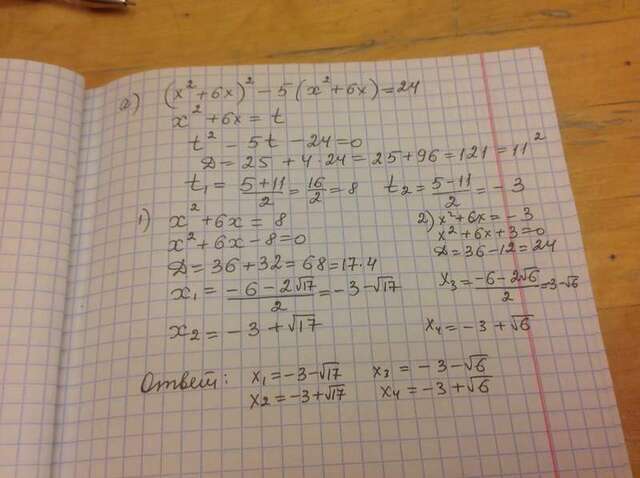 а) (x² + 6x)² − 5(x² + 6x) = 24
x² + 6x = t
t² − 5t − 24 = 0
D = 25 + 4·24 = 25 + 96 = 121 = 11²
t₁ = (5+11)/2 = 16/2 = 8    t₂ = (5−11)/2 = −3
1) x² + 6x = 8
x² + 6x − 8 = 0
D = 36 + 32 = 68 = 17·4
x₁ = (−6 − 2√17)/2 = −3 − √17
x₂ = −3 + √17
2) x² + 6x = −3
x² + 6x + 3 = 0
D = 36 − 12 = 24
x₃ = (−6 − 2√6)/2 = −3 − √6
x₄ = −3 + √6
Ответ: x₁ = −3 − √17    x₃ = −3 − √6
x₂ = −3 + √17    x₄ = −3 + √6